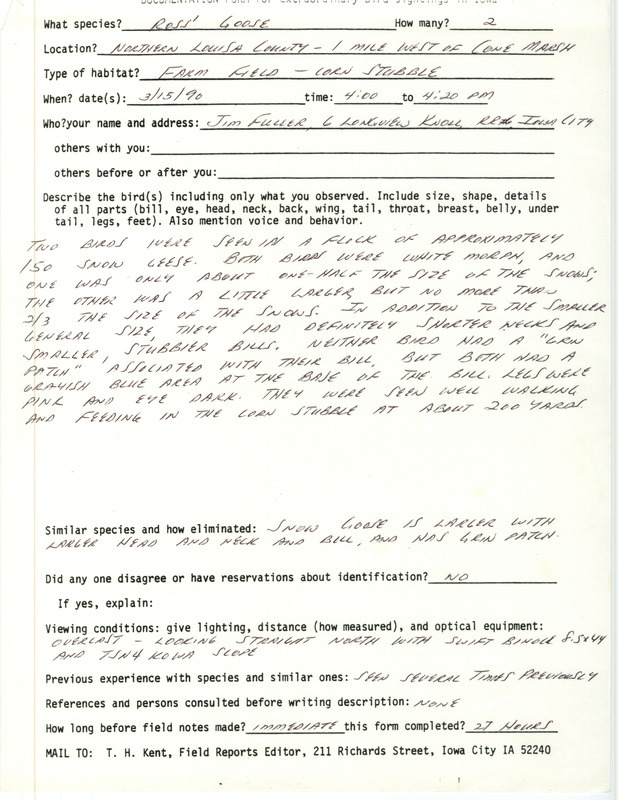 Documentation Form for Extraordinary Bird Sightings in Iowa
What species? ROSS' GOOSE How many? 2
Location? NORTHERN LOUISA COUNTY - 1 MILE WEST OF CONE MARSH
Type of habitat? FARM FIELD - CORN STUBBLE
When? date(s): 3/15/90 time: 4:00 to 4:20 PM
Who?your name and address: JIM FULLER, 6 LONGVIEW KNOLL, RR6, IOWA CITY
others with you:
others before or after you:
Describe the bird(s) including only what you observed. Include size, shape, details
of all parts (bill, eye, head, neck, back, wing, tail, throat, breast, belly, under
tail, legs, feet). Also mention voice and behavior.
TWO BIRDS WERE SEEN IN A FLICK OF APPROXIMATELY
150 SNOW GEESE. BOTH BIRDS WERE WHITE MORPH, AND
ONE WAS ONLY ABOUT ONE-HALF THE SIZE OF THE SNOWS;
THE OTHER WAS A LITTLE LARGER, BUT NO MORE THAN
2/3 THE SIZE OF THE SNOWS. IN ADDITION TO THE SMALLER
GENERAL SIZE, THEY HAD DEFINITELY SHORTER NECKS AND
SMALLER, STUBBIER BILLS. NEITHER BIRD HAD A "GRIN
PATCH" ASSOCIATED WITH THEIR BILL, BUT BOTH HAD A
GRAYISH BLUE AREA AT THE BASE OF THE BILL. LEGS WERE
PINK AND EYE DARK. THEY WERE SEEN WELL WALKING
AND FEEDING IN THE CORN STUBBLE AT ABOUT 200 YARDS.
Similar species and how eliminated: SNOW GOOSE IS LARGER WITH
LARGER HEAD AND NECK AND BILL, AND HAS GRIN PATCH.
Did any one disagree or have reservations about identification? NO
If yes, explain:
Viewing conditions: give lighting, distance (how measured), and optical equipment:
OVERCAST - LOOKING STRAIGHT NORTH WITH SWIFT BINOC 8.5x44
AND TSN4 KOWA SCOPE
Previous experience with species and similar ones: SEEN SEVERAL TIMES PREVIOUSLY
References and persons consulted before writing description: NONE
How long before field notes made? IMMEDIATE this form completed? 27 HOURS
MAIL TO: T. H. Kent, Field Reports Editor, 211 Richards Street, Iowa City IA 52240